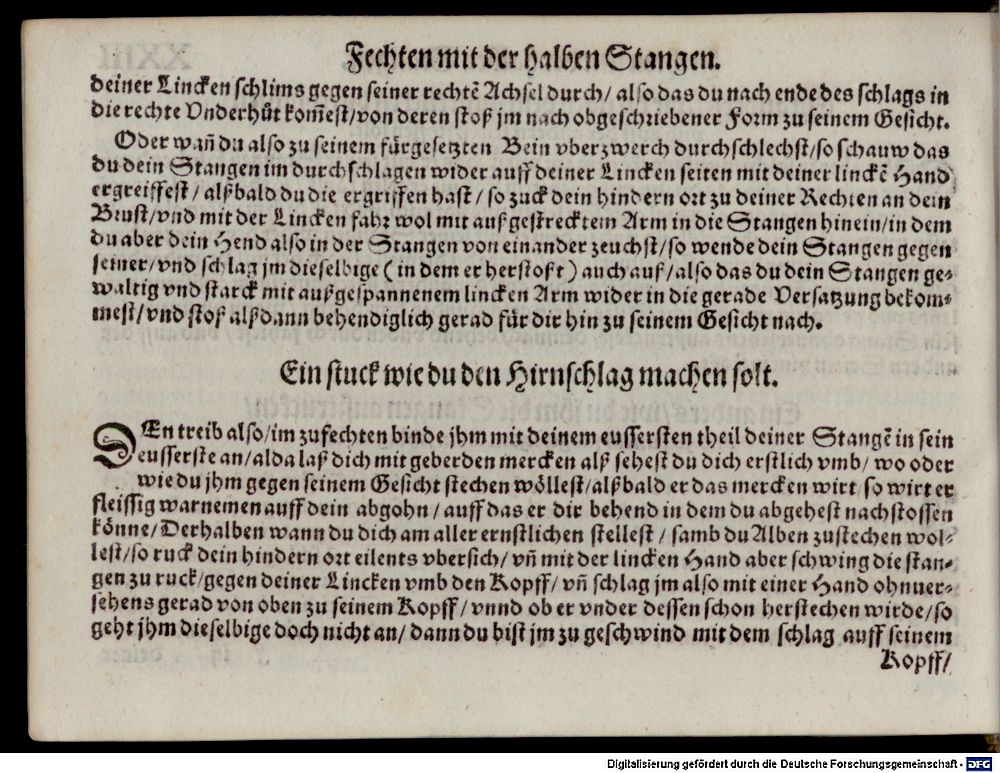 Fechten mit der halben Stangen.
deiner Lincken schlims gegen seiner rechtẽ Achsel durch/ also das du nach ende des schlags in
die rechte Vnderhůt kom̃est/ von deren stoß jm nach obgeschriebener Form zu seinem Gesicht.
Oder wañ du also zu seinem fürgesetzten Bein vberzwerch durchschlechst/ so schauw das
du dein Stangen im durchschlagen wider auff deiner Lincken seiten mit deiner linckẽ Hand
ergreiffest/ alßbald du die ergriffen hast/ so zuck dein hindern ort zu deiner Rechten an dein
Brust/ vnd mit der Lincken fahr wol mit außgestrecktem Arm in die Stangen hinein/ in dem
du aber dein Hend also in der Stangen von einander zeuchst/ so wende dein Stangen gegen
seiner/ vnd schlag jm dieselbige (in dem er herstoßt) auch auß/ also das du dein Stangen ge-
waltig vnd starck mit außgespannenem lincken Arm wider in die gerade Versatzung bekom-
mest/ vnd stoß alßdann behendiglich gerad für dir hin zu seinem Gesicht nach.
Ein stuck wie du den Hirnschlag machen solt.
DEn treib also/ im zufechten binde jhm mit deinem eussersten theil deiner Stangẽ in sein
eusserste an/ alda laß dich mit geberden mercken alß sehest du dich erstlich vmb/ wo oder
wie du jhm gegen seinem Gesicht stechen wöllest/ alßbald er das mercken wirt so wirt er
fleissig warnemen auff dein abgohn/ auff das er dir behend in dem du abgehest nachstossen
könne/ Derhalben wann du dich am aller ernstlichen stellest/ samb du Alben zustechen wol-
lest/ so ruck dein hindern ort eilents vbersich/ vñ mit der lincken Hand aber schwing die stan-
gen zu ruck/ gegen deiner Lincken vmb den Kopff/ vñ schlag jm also mit einer Hand ohnuer-
sehens gerad von oben zu seinem Kopff/ vnnd ob er vnder dessen schon herstechen wirde/ so
geht jhm dieselbige doch nicht an/ dann du bist jm zu geschwind mit dem schlag auff seinem
Kopff/
Digitalisierung gefördert durch die Deutsche Forschungsgemeinschaft - DFG